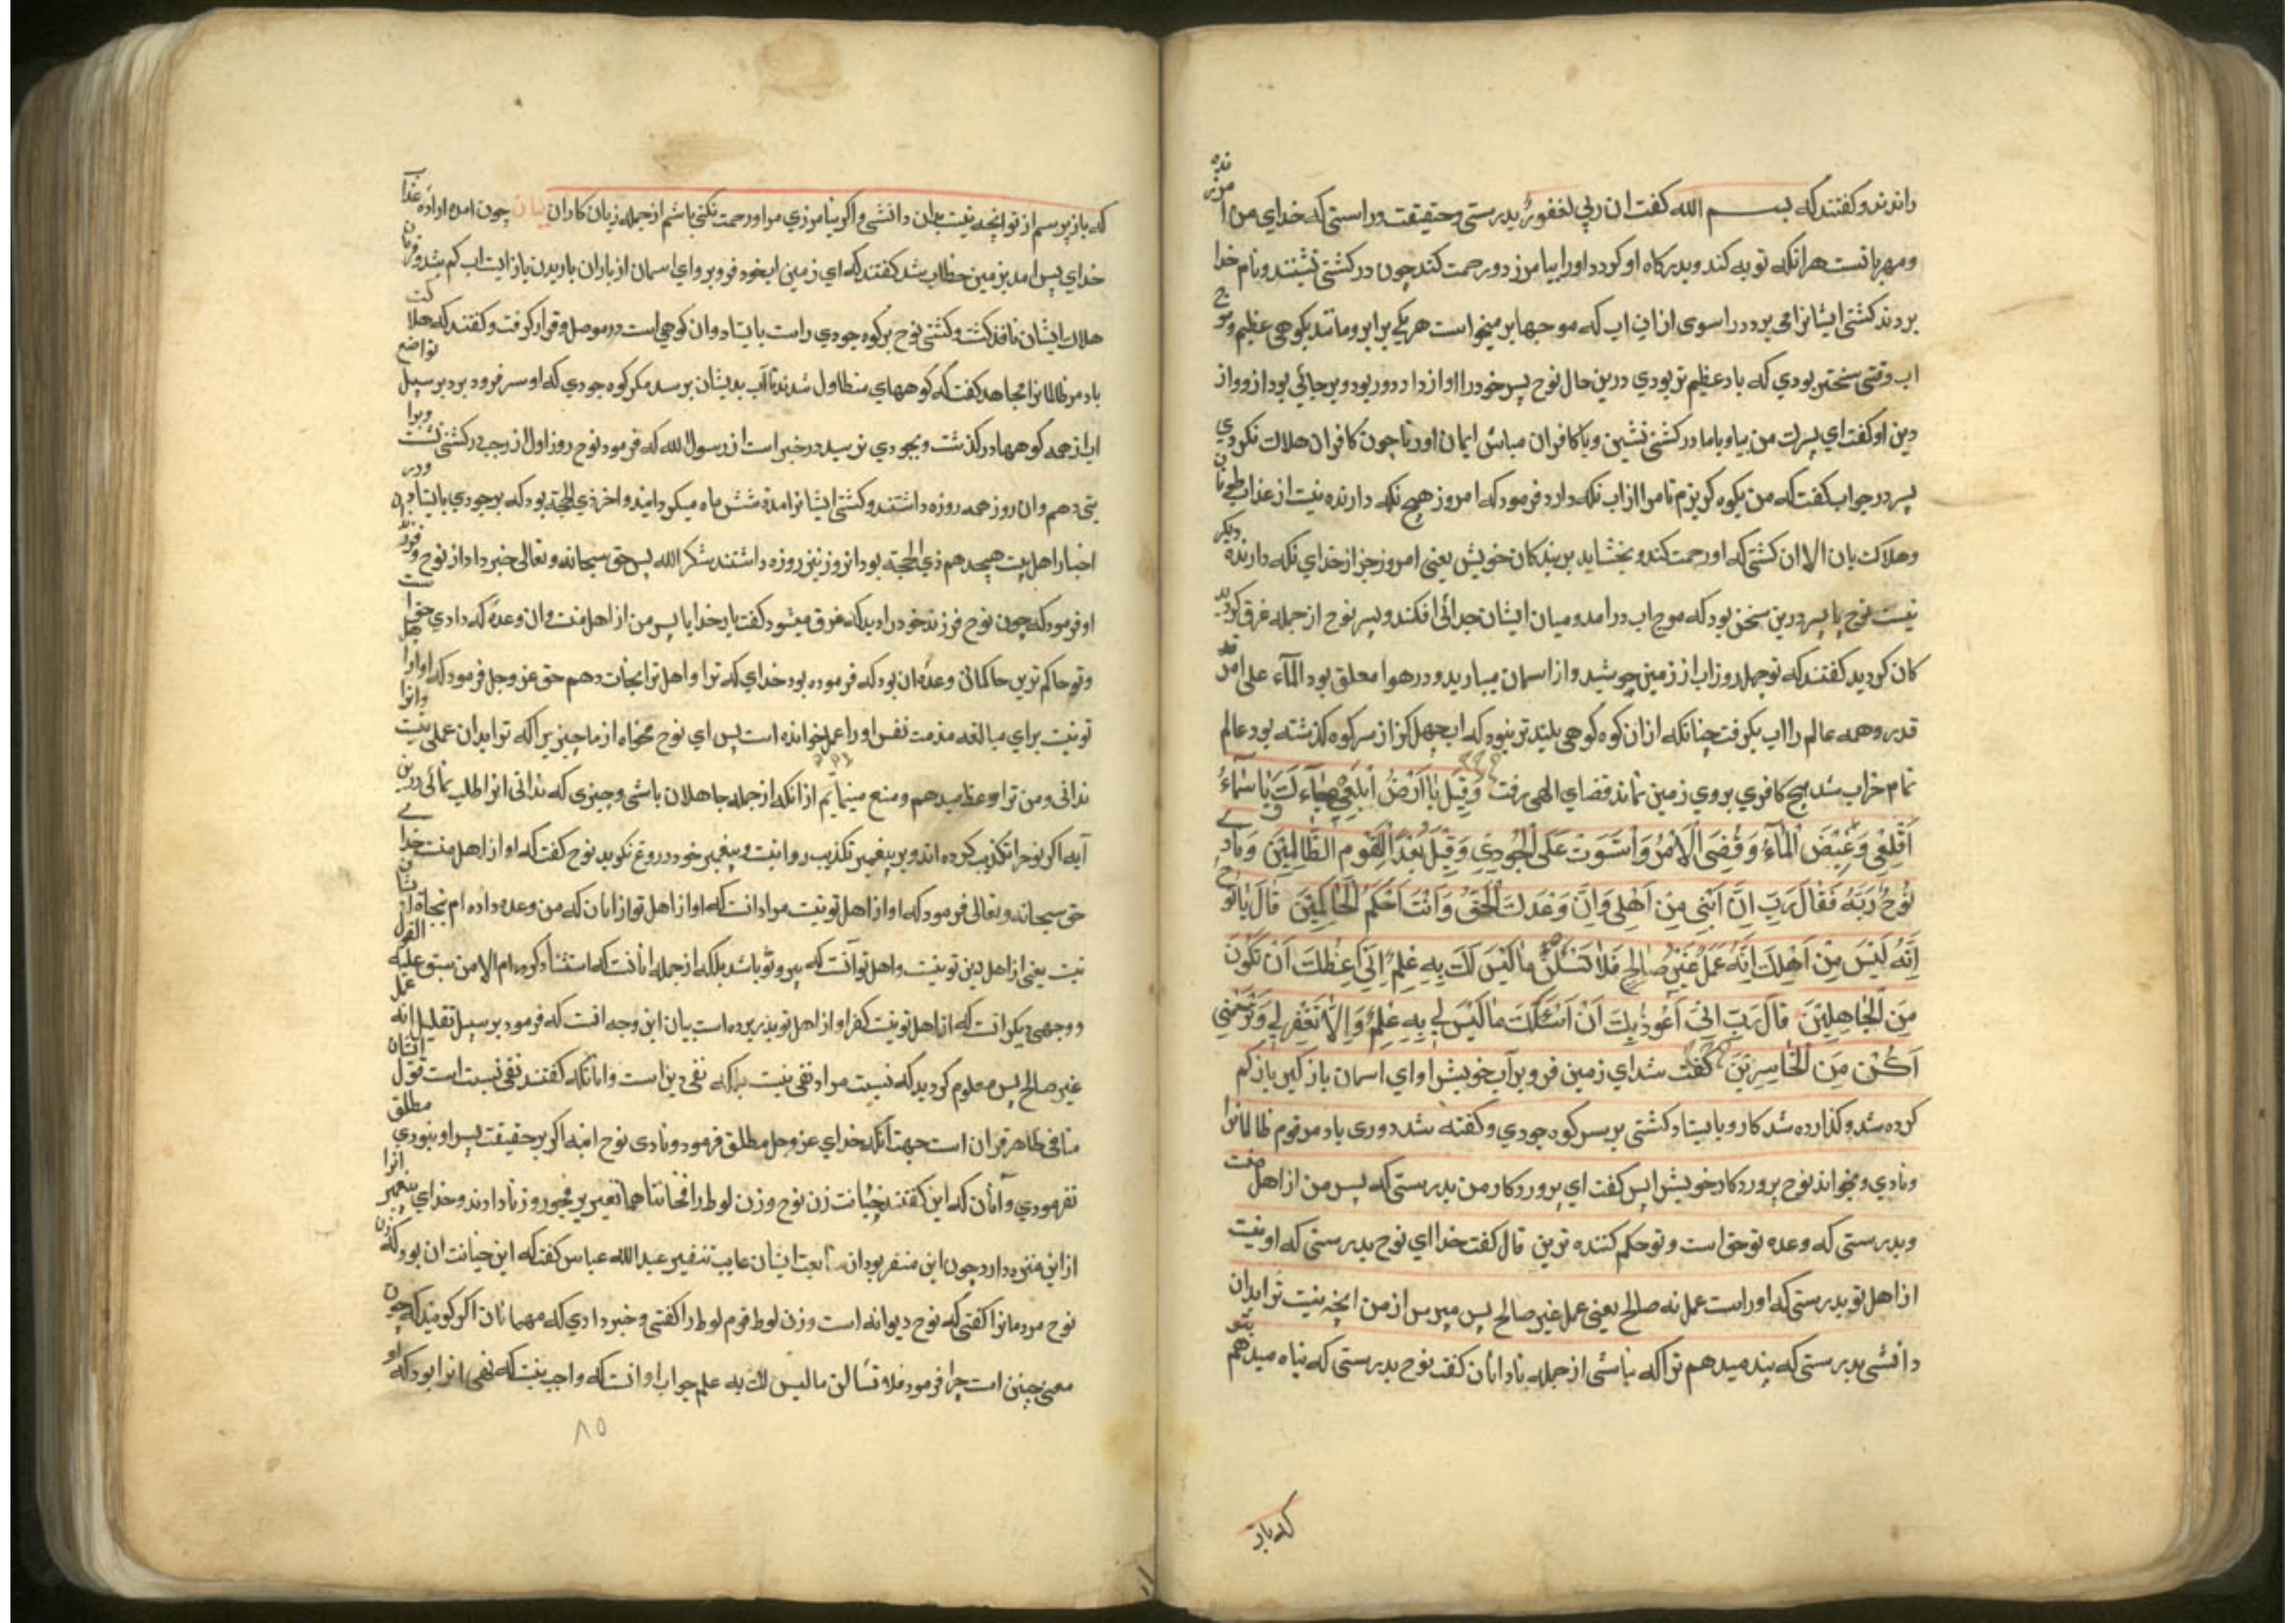 راندند و کفتند که بسم الله کفت ان ربی لغفور بدرستی و حقیقت و راستی که خدای من امرزنده
و مهربانست هرانکه توبه کند و بدرکاه او کردد اورا بیامرزد و رحمت کند چون در کشتی نشتند و نام خدا
بردند کشتی ایشانرا می برد در اسوی ازان اب که موجها بر میخواست هر یکی برابر و مانند بکوهی عظیم و موج
اب وقتی سختتر بودی که باد عظیم تر بودی درین حال نوح پسر خود را اواز داد دور بود و بر جائی بود از و واز
دین او کفت ای پسرک من بیا و با ما در کشتی نشین و با کافران مباش ایمان اور تا چون کافران هلاک نکردی
پسر در جواب کفت که من بکوه کریزم تا مرا از اب نکه دارد فرمود که امروز هیچ نکه دارنده نیست از عذاب طوفان
و هلاکت بان الا ان کشتی که او رحمت کند و بخشاید بر بندکان خویش یعنی امروز جز از خدای نکه دارنده دیکر
نیست نوح با پسر درین سخن بود که موج اب در امد و میان ایشان جدائی افکند و پسر نوح از جمله غرق کردید
کان کردید کفتند که نوچهل روز اب از زمین جوشید و از اسمان میبارید و در هوا معلق بود الماء علی امر قد
قدر و همه عالم را اب بکرفت چنانکه ازان کوه کوهی بلیند تر نبود که اب چهل کز از سر کوه کذشته بود عالم
تمام خراب شد هیچ کافری بروی زمین نماند قضای الهی برفت وَقِیلَ یٰا اَرْضُ ابْلَعِی مٰاءَکَ وَیٰا سَمٰاءُ
اَقْلِعِی وَغِیضَ الْمٰاءُ وَقُضِیَ الْاَمْرُ وَاسْتَوَتْ عَلَی الْجُودِیِّ وَقِیلَ بُعْدًا لِلْقَوْمِ الظّٰالِمِینَ وَنٰادٰی
نُوحٌ رَبَّهُ فَقٰالَ رَبِّ اِنَّ ابْنِی مِنْ اَهْلِی وَاِنَّ وَعْدَکَ الْحَقُّ وَاَنْتَ اَحْکَمُ الْحٰاکِمِینَ قٰالَ یٰا نُوحُ
اِنَّهُ لَیْسَ مِنْ اَهْلِکَ اِنَّهُ عَمَلٌ غَیْرُ صٰالِحٍ فَلٰا تَسْئَلْنِ مٰا لَیْسَ لَکَ بِهِ عِلْمٌ اِنِّی اَعِظُکَ اَنْ تَکُونَ
مِنَ الْجٰاهِلِینَ قٰالَ رَبِّ اِنِّی اَعُوذُ بِکَ اَنْ اَسْئَلَکَ مٰا لَیْسَ لِی بِهِ عِلْمٌ وَاِلّٰا تَغْفِرْ لِی وَتَرْحَمْنِی
اَکُنْ مِنَ الْخٰاسِرِینَ کفت شد ای زمین فرو بر آب خویش را و ای اسمان باز کیر باز کم
کرده شد و کذارده شد کار و بایستاد کشتی بر سر کوه جودی و کفته شد دوری باد مر قوم ظالمانرا
و نادی و بخواند نوح پروردکار خویش پس کفت ای پروردکار من بدرستی که پسر من از اهل منت
و بدرستی که وعده تو حق است و تو حکم کننده ترین قال کفت خدا ای نوح بدرستی که او نیست
از اهل تو بدرستی که اوراست عمل نه صالح یعنی عمل غیر صالح پس مپرس از من انچه نیست ترا بدان
دانشی بدرستی که پند میدهم ترا که نباشی از جمله نادانان کفت نوح بدرستی که پناه میدهم بتو
که باز
که باز پرسم از تو انچه نیست بدان دانشی و اکر نیامرزی مرا و رحمت نکنی باشم از جمله زیان کاران بیان چون امد او اراده عذاب
خدای پس امد بزمین خطاب شد کفتند که ای زمین ابخود فرو بر و ای اسمان از باران باریدن باز ایست اب کم شد و فرمان
هلاک ایشان نافذ کشت و کشتی نوح بر کوه جودی راست بایستاد و ان کوهی است در موصل و قرار کرفت و کفتند که هلاکت
باد مر ظالمانرا مجاهد کفت که کوههای متطاول شدند تا آب بدیشان برسد مکر کوه جودی که او سر فرود برد بر سبیل تواضع
اب از همه کوهها در کذشت و بجودی نرسید در خبر است از رسول الله که فرمود نوح روز اول از رجب در کشتی نشست و برا
یتی دهم و ان روز همه روزه داشتند و کشتی ایشانرا مدة شش ماه میکردانید و اخر ذی الحجة بود که بر جودی بایستاد و در
اخبار اهل بیت هیجدهم ذی الحجة بود انروز نیز روزه داشتند شکر الله پس حق سبحانه و تعالی خبر داد از نوح و فرزند
او فرمود که چون نوح فرزند خود را دید که غرق میشود کفت بار خدایا پسر من از اهل منت و ان وعده که دادی حق است
و تو حاکم ترین حاکمانی وعده ان بود که فرموده بود خدای که ترا و اهل ترا نجات دهم حق عز و جل فرمود که او از اهل
تو نیست برای مبالغه مذمت نفس او را عمل خوانده است پس ای نوح مخواه از ما چیزیرا که ترا بدان عملی نیست و انرا
ندانی و من ترا وعظ میدهم و منع مینمایم از انکه از جمله جاهلان باشی و چیزی که ندانی انرا طلب نمائی درین
آیه اکر نوح را تکذیب کرده اند و بر پیغمبر تکذیب روا نیست و پیغمبر خود دروغ نکوید نوح کفت که او از اهل منت خدا
حق سبحانه و تعالی فرمود که او از اهل تو نیست مراد انست که او از اهل تو از انان که من وعده داده ام نجاة ایشان
نیست یعنی از اهل دین تو نیست و اهل تو آنست که پیرو تو باشد بلکه از جمله انانست که استثنا کرده ام الا من سبق علیه القول
و وجهی دیکر انست که از اهل تو نیست کفر او از اهل تو بدر برده است بیان این وجه انست که فرمود بر سبیل تعلیل انه عمل
غیر صالح پس معلوم کردید که نیست مراد نفی نیست بلکه نفی دین است و انانکه کفتند نفی نسبت است قول ایشان
منافی ظاهر قران است جهت انکه خدای عز و جل مطلق فرمود و نادی نوح ابنه اکر بر حقیقت پسر او نبودی مطلق
نفرمودی و آنان که این کفتند خیانت زن نوح و زن لوط را فخانتاهما تعبیر بر فجور و زنا دادند و خدای پیغمبر انرا
از این منزه دارد چون این منفر بود از ایشان عبد الله عباس کفت که این خیانت ان بود که زن
نوح مردمانرا کفتی که نوح دیوانه است و زن لوط قوم لوط را کفتی و خبر دادی که مهمانان اکر کویند که چون
معنی چنین است چرا فرمود فلا تسالن ما لیس لک به علم جواب او انست که واجب نیست که نهی انرا بود که او
۸۵